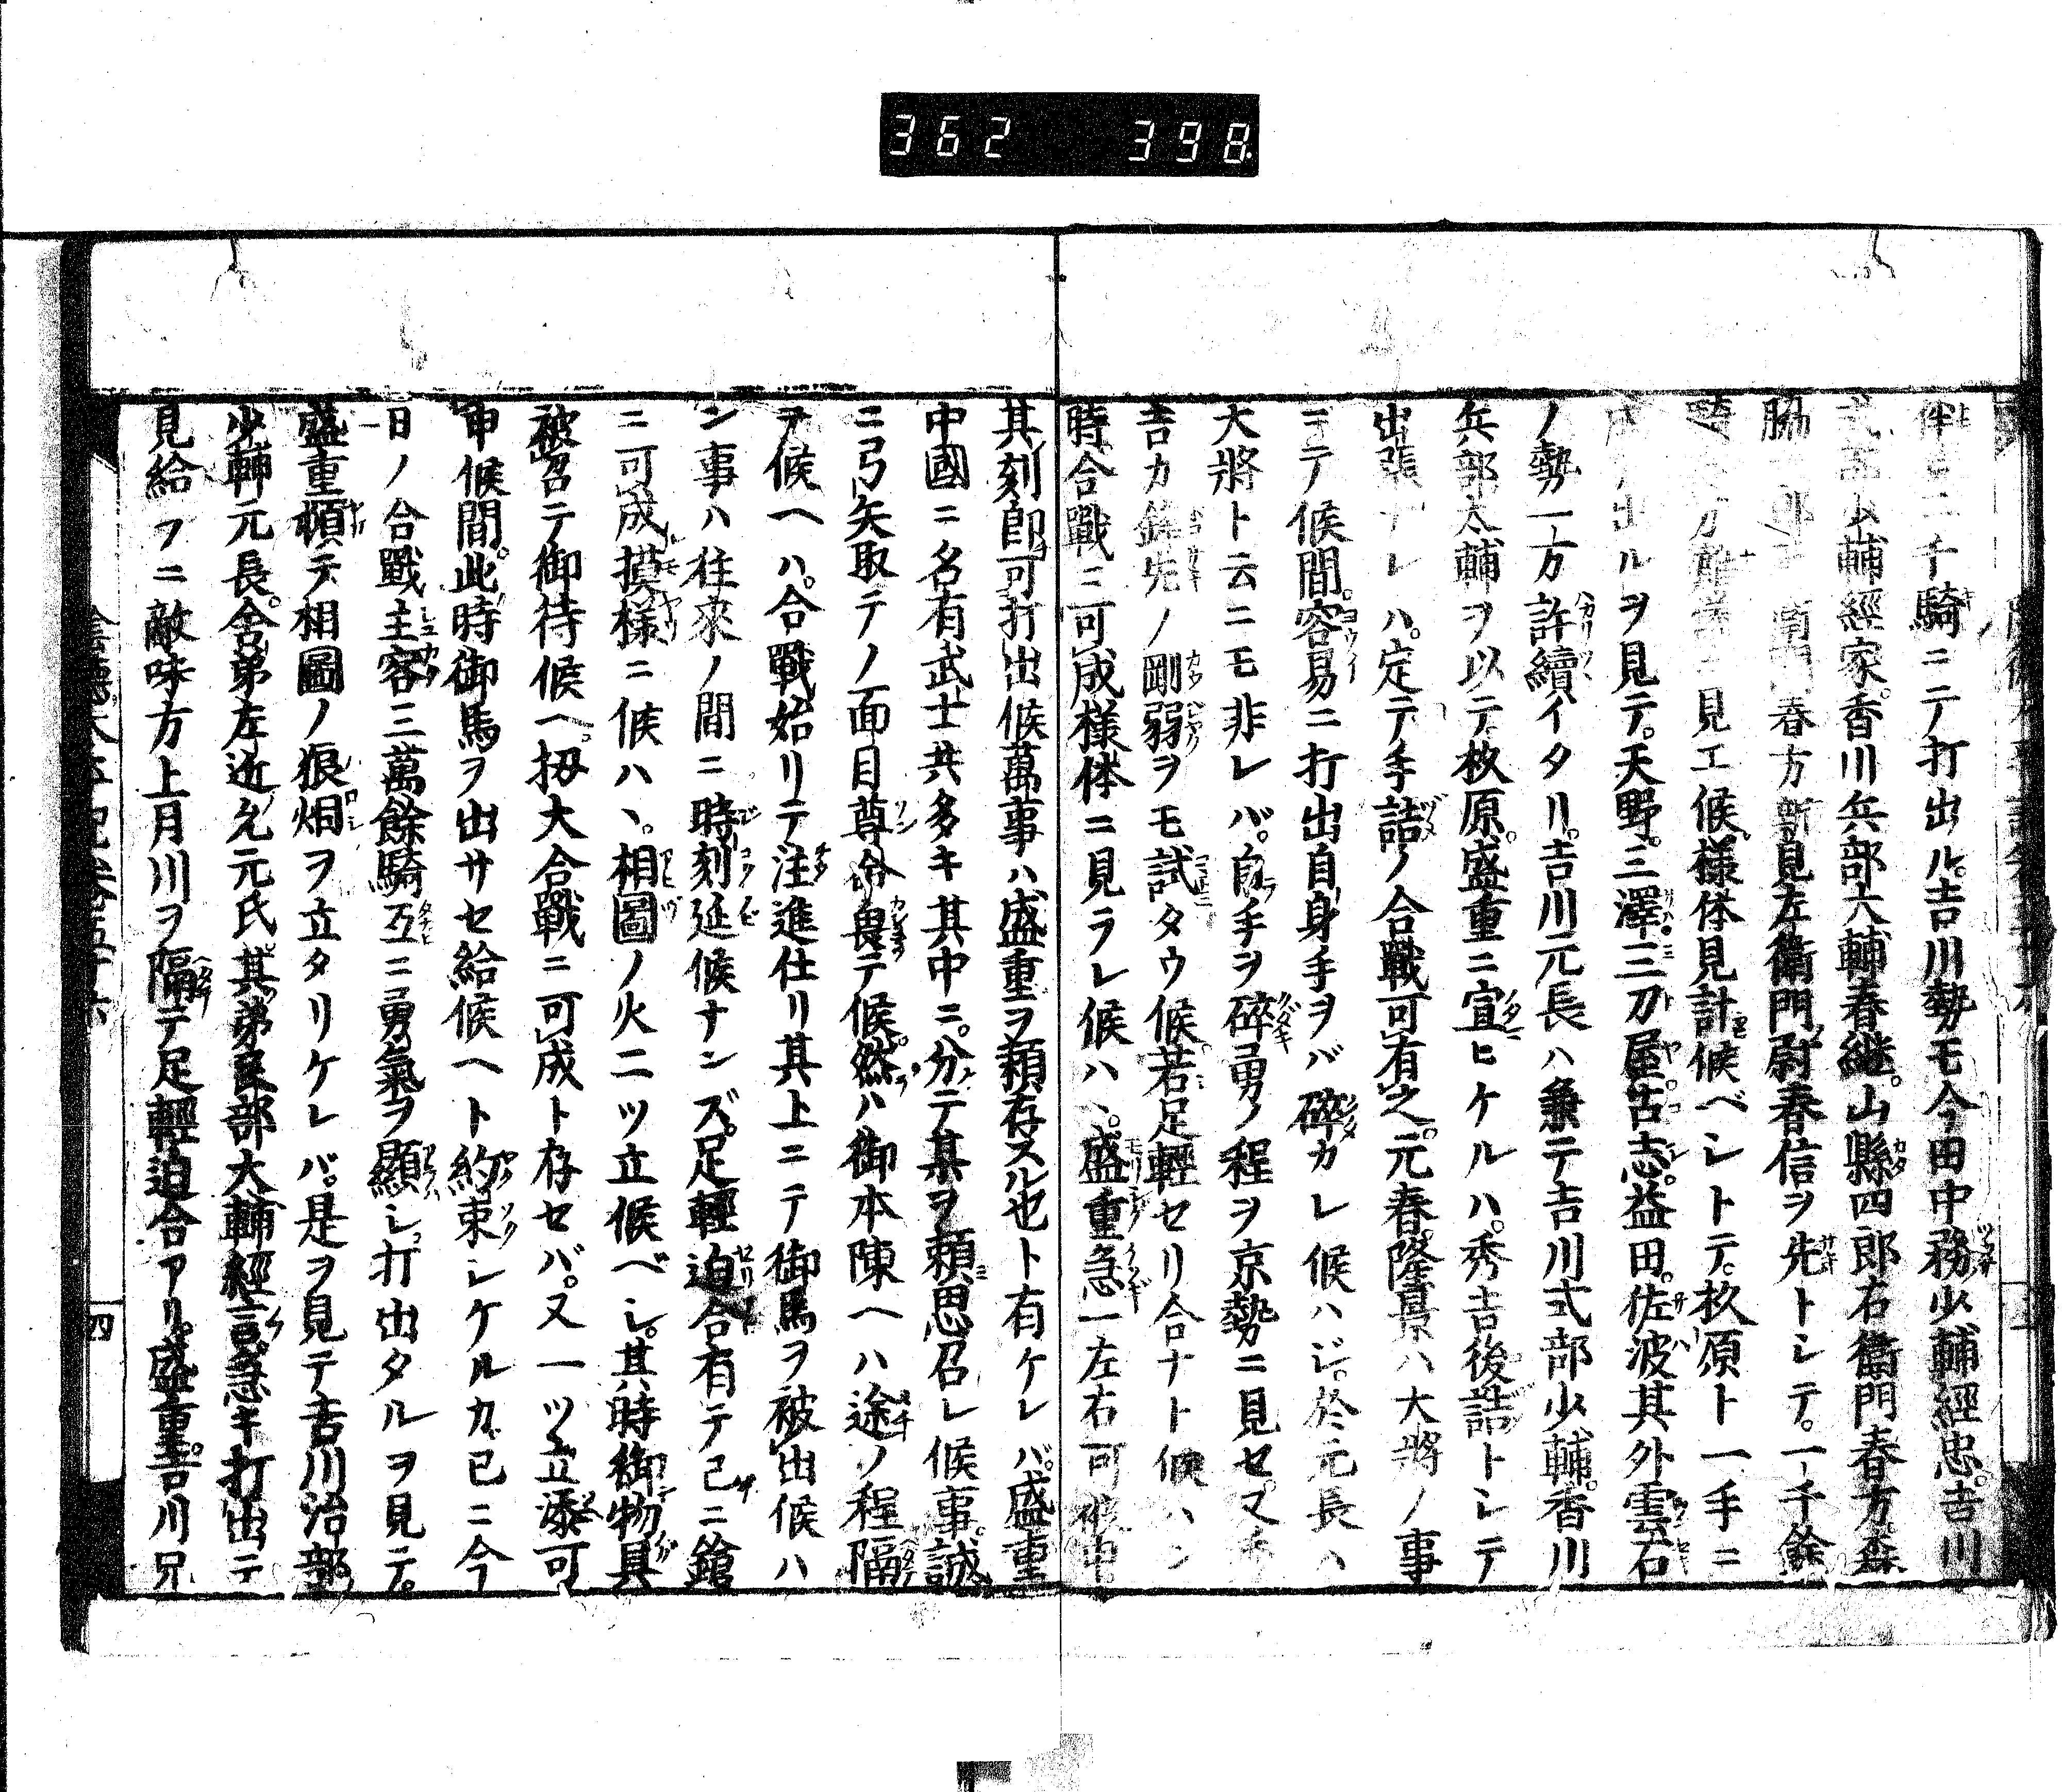 362 398
伴ヒ二千騎ニテ打出ル。吉川勢モ今田中務少輔經忠。吉川
式部少輔經家。香川兵部大輔春継。山縣四郎右衞門春方。森
脇 春方新見左衞門尉春信ヲ先トシテ。一千餘
見エ候。様体見計候ベシトテ。杦原ト一手ニ
出ルヲ見テ。天野。三澤三刀屋古志。益田。佐波其外雲石
ノ勢一万許續イタリ。吉川元長ハ兼テ吉川式部少輔。香川
兵部太輔ヲ以テ杦原。盛重ニ宣ヒケルハ。秀吉後詰トシテ
出張ナレハ。定テ手詰ノ合戰可有之。元春。隆景ハ大將ノ事
ニテ候間。容易ニ打出自身手ヲバ碎カレ候ハジ。於元長ハ
大將ト云ニモ非レバ。自手ヲ碎勇ノ程ヲ京勢ニ見セ。又秀
吉カ鋒先ノ剛弱ヲモ試タウ候。若足輕セリ合ナト候ハン
時合戰ニ可成様体ニ見ラレ候ハヽ。盛重急一左右可候申
其刻即可打出候萬事ハ盛重ヲ頼存スル也ト有ケレバ。盛重
中國ニ名有武士共多キ其中ニ。分テ某ヲ頼思召レ候事。誠
ニ弓矢取テノ面目尊命畏テ候。然ハ御本陳ヘハ途ノ程隔
ヲ候ヘハ。合戰始リテ注進仕リ其上ニテ御馬ヲ被出候ハ
ン事ハ往來ノ間ニ時刻延候ナンズ。足輕迫合有テ已ニ鎗
ニ可成摸様ニ候ハヽ。相圖ノ火二ツ立候ベシ。其時御物具
被召テ御待候ヘ。扨大合戰ニ可成ト存セバ。又一ツ立添可
申候間。此時御馬ヲ出サセ給候ヘト約束シケルカ。已ニ今
日ノ合戰主客三萬餘騎互ニ勇氣ヲ顯シ。打出タルヲ見テ。
盛重頓テ相圖ノ狼烟ヲ立タリケレバ。是ヲ見テ吉川治部
少輔元長。舎弟左近允元氏。其弟民部大輔經言急キ打出テ
見給フニ敵味方上月川ヲ隔テ足輕迫合アリ。盛重。吉川兄
四